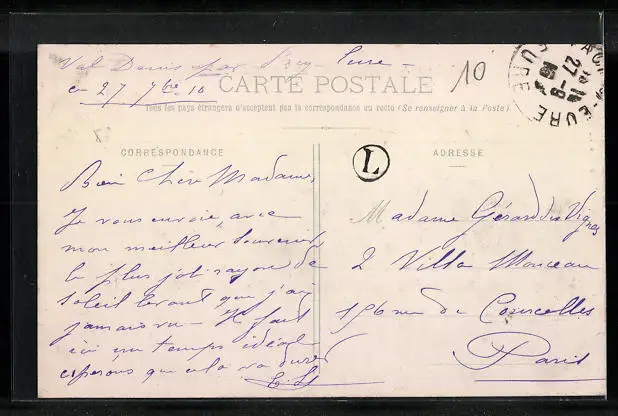 Val Denis par Pacy Eure -
ce 27 7bre 10
10
CARTE POSTALE
Tous les pays étrangers n'acceptent pas la correspondance au recto (Se renseigner à la Poste)
CORRESPONDANCE
Bien Chère Madame,
Je vous envoie, avec
mon meilleur souvenir
le plus joli rayon de
soleil levant que j'ai
jamais vu - Il fait
ici un temps idéal
esperons que cela va durer
L
ADRESSE
Madame Gérard des Vignes
2 Villa Monceau
156 rue de Courcelles
Paris
27 -9
EURE